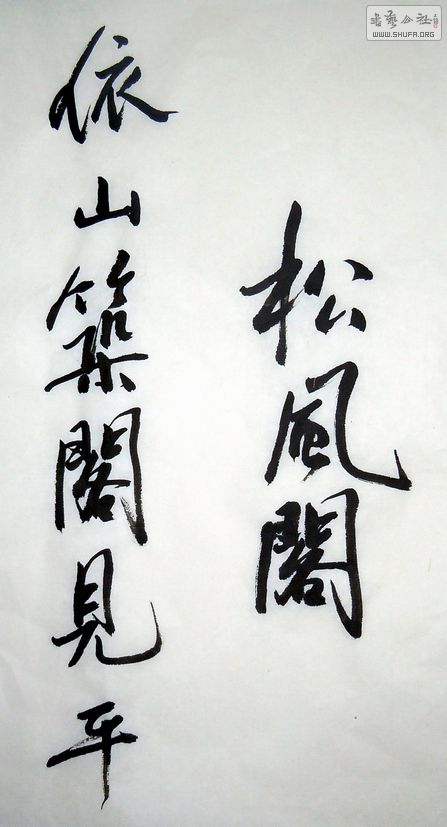 松風閣
依山築閣見平
書藝公社
WWW.SHUFA.ORG